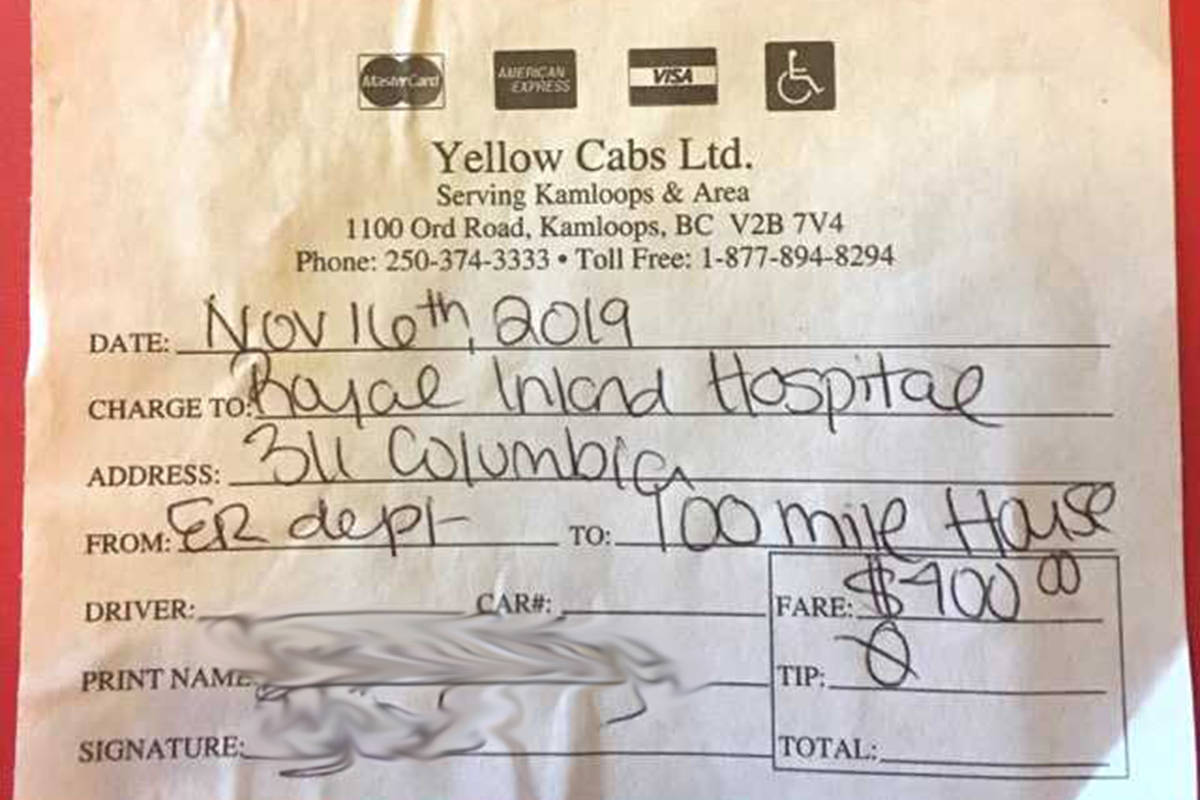 MasterCard AMERICAN EXPRESS VISA
Yellow Cabs Ltd.
Serving Kamloops & Area
1100 Ord Road, Kamloops, BC V2B 7V4
Phone: 250-374-3333 • Toll Free: 1-877-894-8294
DATE: Nov 16th, 2019
CHARGE TO: Royal Inland Hospital
ADDRESS: 311 Columbia
FROM: ER dept TO: 100 mile House
DRIVER: CAR#: FARE: $400 00
PRINT NAME: TIP: 0
SIGNATURE: TOTAL: